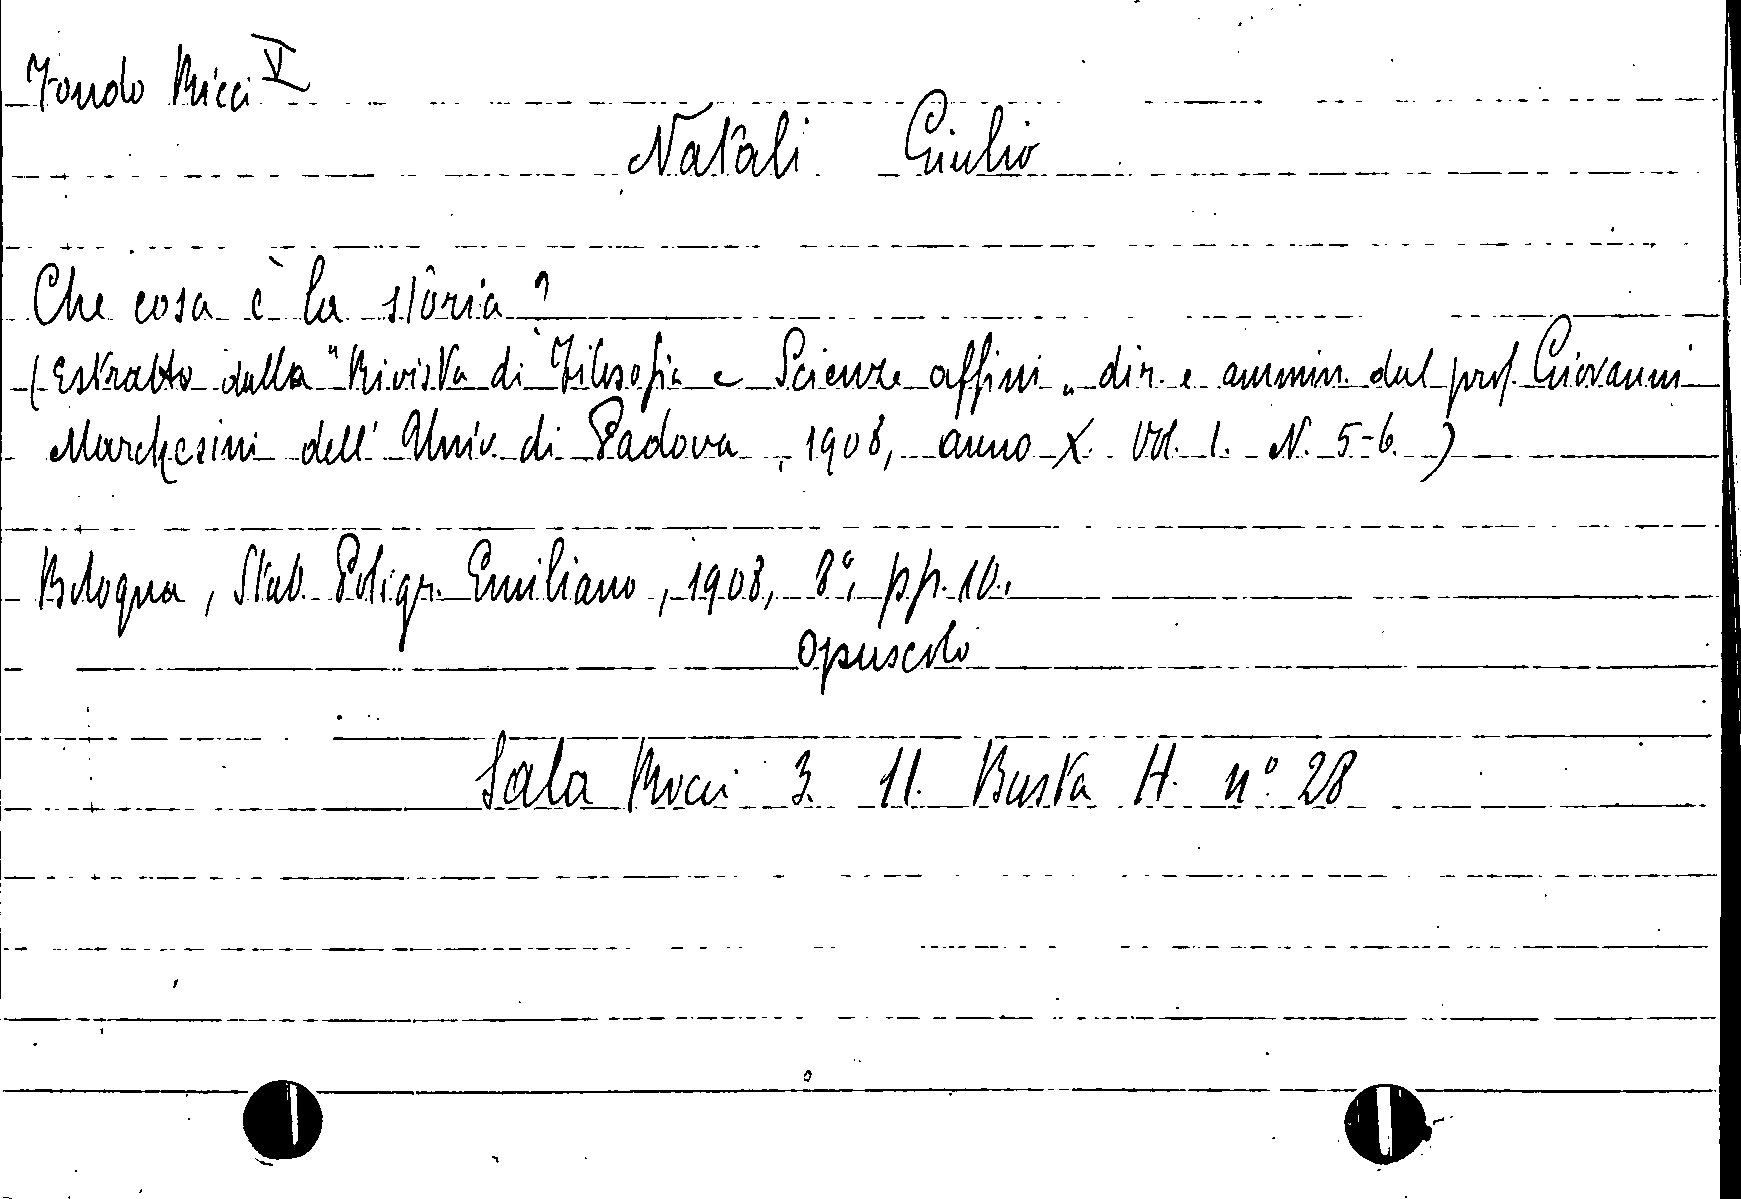 Fondo Ricci V
Natali Giulio
Che cosa è la storia?
(Estratto dalla "Rivista di Filosofia e Scienze affini„ dir. e ammin. dal prof. Giovanni
Marchesini dell' Univ. di Padova, 1908, anno X. Vol. I. N. 5-6.)
Bologna, Stab. Poligr. Emiliano, 1908, 8°, pp. 10.
opuscolo
Sala Ricci 3. 11. Busta H. n° 28